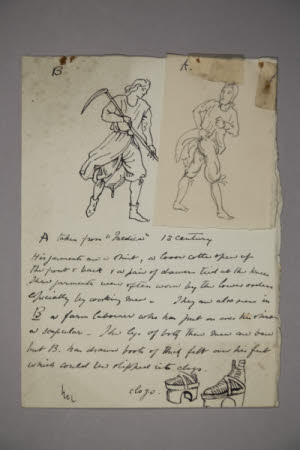 B
A.
A taken from "       " 13 century
His garments are a shirt, a loose cotte open up
the front & back & a pair of drawers tied at the knee
These garments were often worn by the lower orders
especially by working men - They are also seen in
B a farm labourer who has put on over his shirt
a scapular - The legs of both these men are bare
but B. has drawn boots of thick felt over his feet
which could be slipped into clogs.
clogs